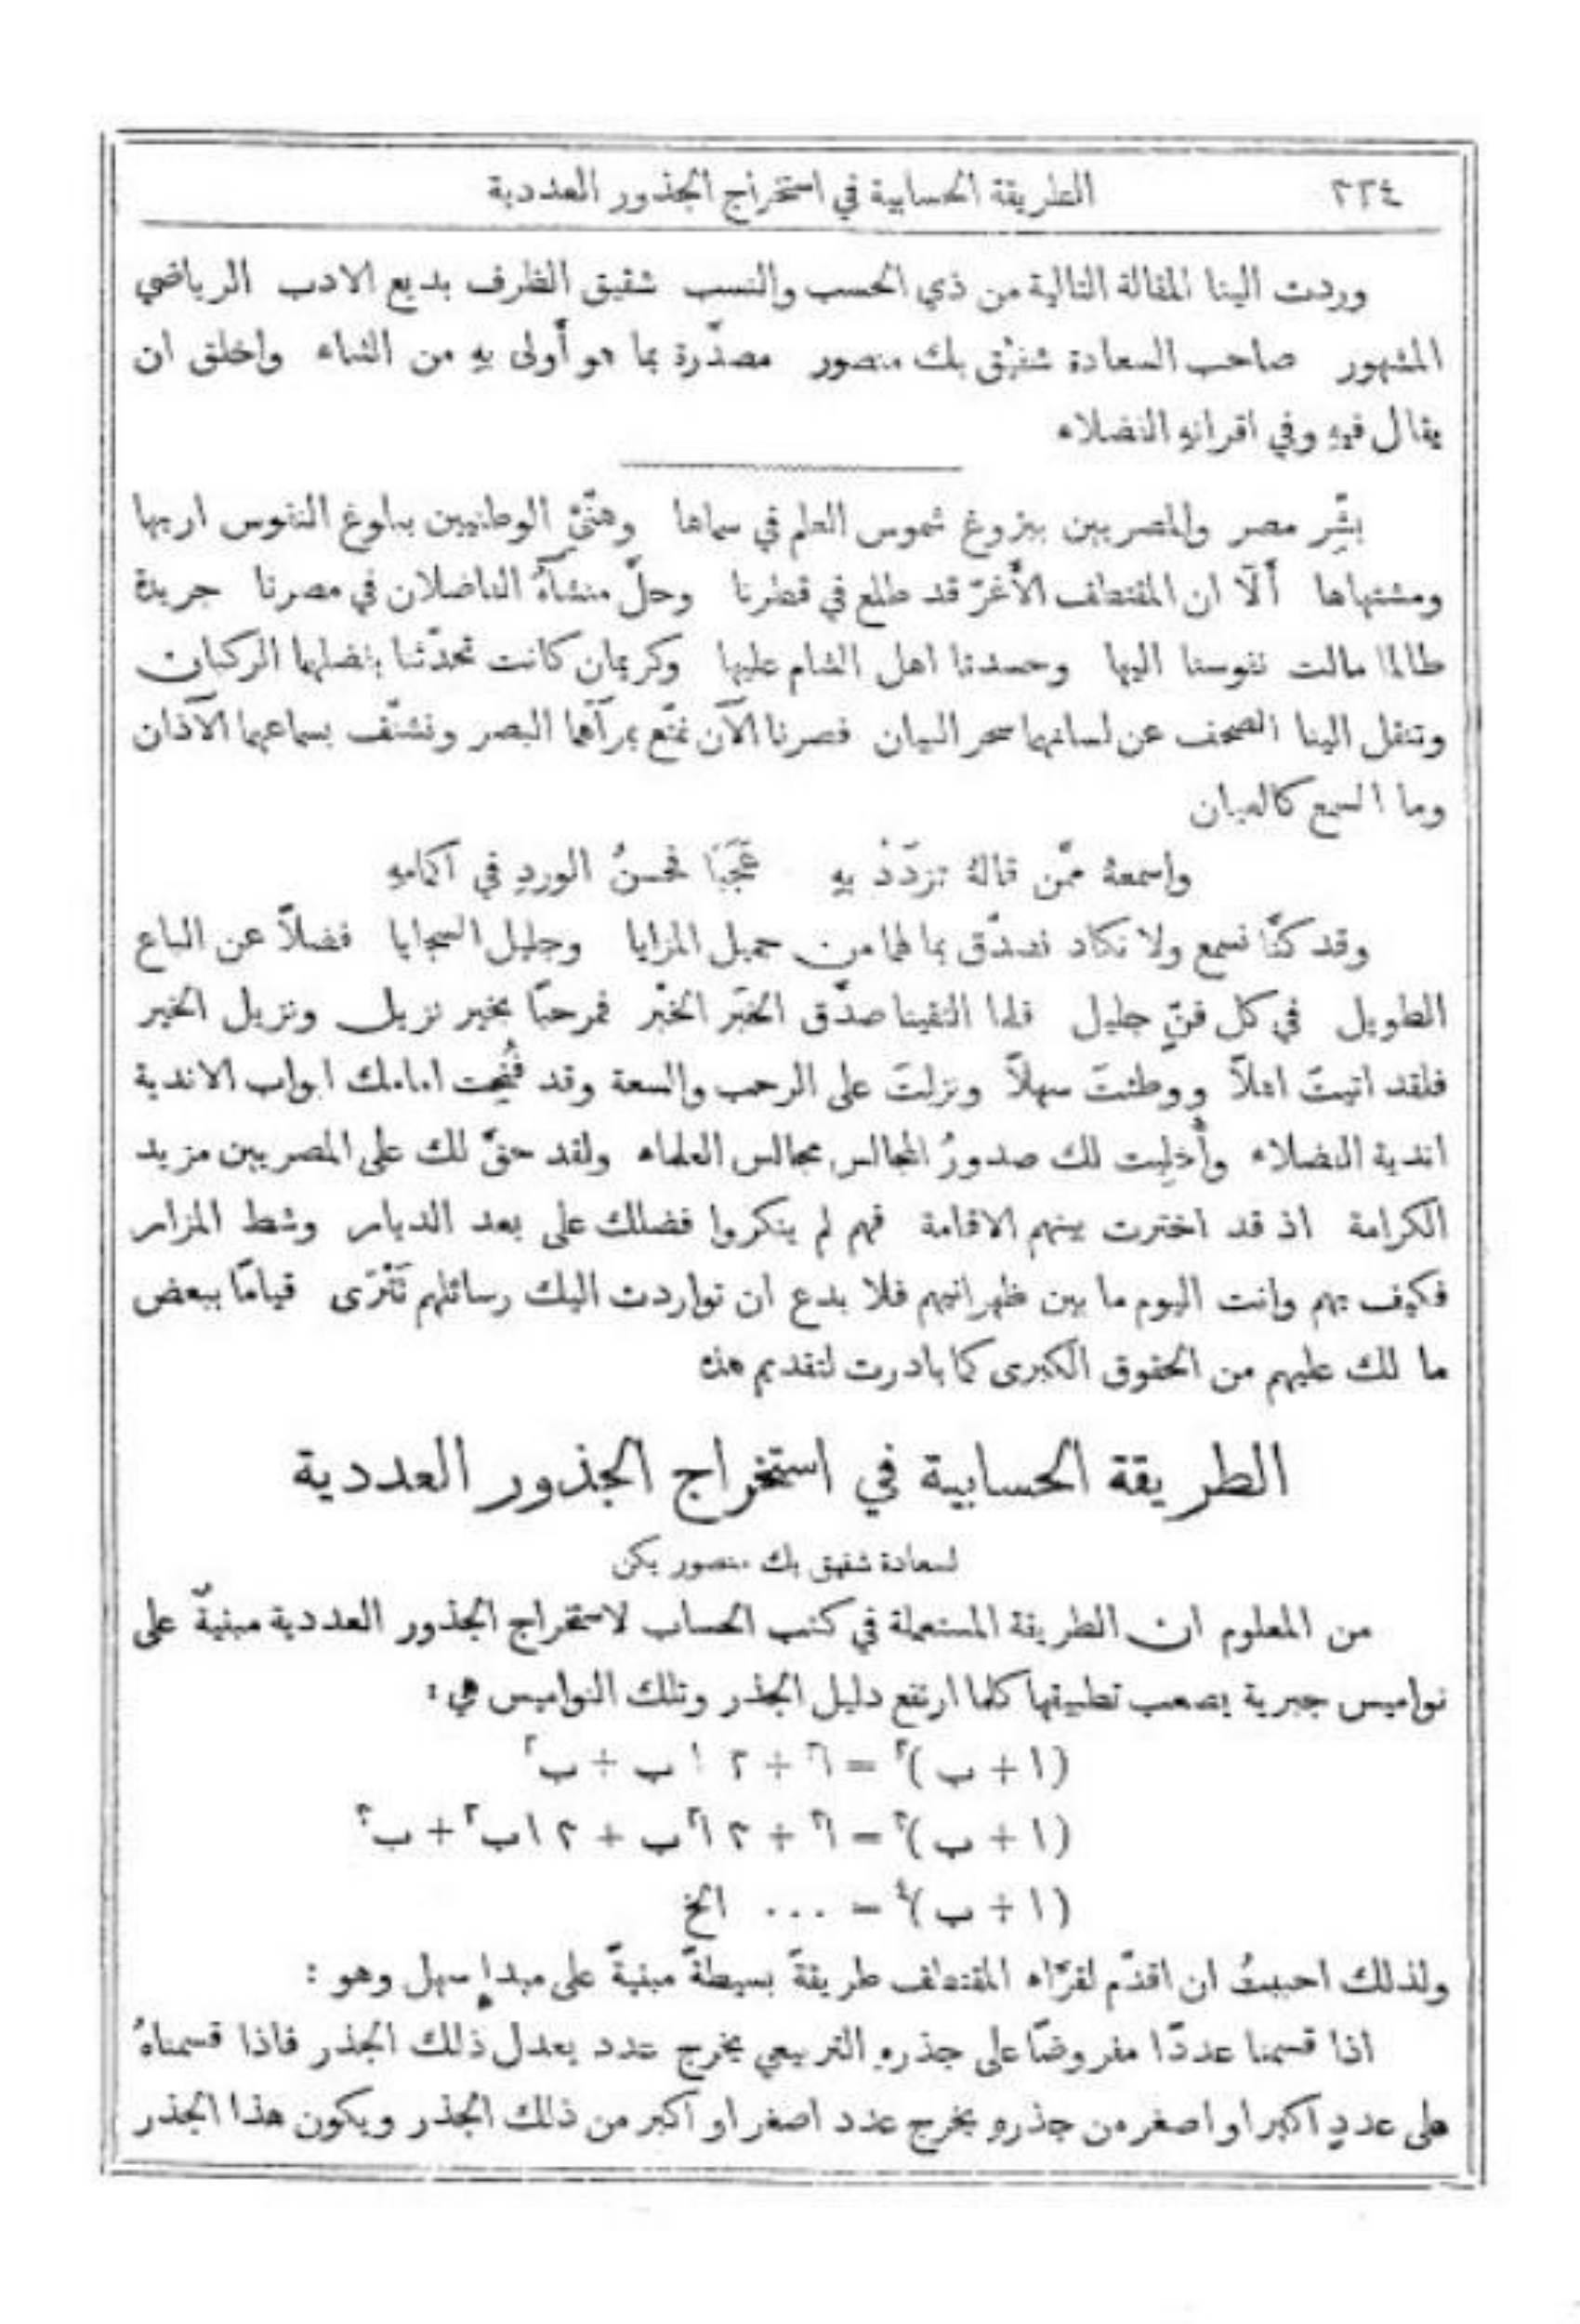 ٢٢٤ الطريقة الحسابية في استخراج الجذور العددية
وردت الينا المقالة التالية من ذي الحسب والنسب شقيق الظرف بديع الادب الرياضي
المشهور صاحب السعادة شفيق بك منصور مصدّرة بما هو أَولى بهِ من الثناء واخلق ان
يقال فيهِ وفي اقرانهِ الفضلاء
بشِّر مصر والمصريين ببزوغ شموس العلم في سماها وهنّئِ الوطنيين ببلوغ النفوس اربها
ومشتهاها أَلَا ان المقتطف الأَغرّ قد طلع في قطرنا وحلَّ منشآهُ الفاضلان في مصرنا جريدة
طالما مالت نفوسنا اليها وحسدنا اهل الشام عليها وكريمان كانت تحدّثنا بفضلهما الركبان
وتنقل الينا الصحف عن لسانهما سحر البيان فصرنا الآن نمتّع بمرآهما البصر ونشنّف بسماعهما الآذان
وما السمع كالعيان
واسمعهُ ممّن قالهُ تزدَدْ بهِ عَجَبًا فحسنُ الوردِ في اكمامهِ
وقد كنَّا نسمع ولا نكاد نصدّق بما لهما من جميل المزايا وجليل السجايا فضلاً عن الباع
الطويل في كل فنٍّ جليل فلما التقينا صدّق الخبَر الخُبْر فمرحبًا بخير نزيل ونزيل الخير
فلقد اتيتَ اهلاً ووطئتَ سهلاً ونزلتَ على الرحب والسعة وقد فُتِحت امامك ابواب الاندية
اندية الفضلاء وأُخلِيت لك صدورُ المجالس مجالس العلماء ولقد حقَّ لك على المصريين مزيد
الكرامة اذ قد اخترت بينهم الاقامة فهم لم ينكروا فضلك على بعد الديار وشط المزار
فكيف بهم وانت اليوم ما بين ظهرانيهم فلا بدع ان تواردت اليك رسائلهم تَتْرَى قيامًا ببعض
ما لك عليهم من الحقوق الكبرى كما بادرت لتقديم هذه
الطريقة الحسابية في استخراج الجذور العددية
لسعادة شفيق بك منصور يكن
من المعلوم ان الطريقة المستعملة في كتب الحساب لاستخراج الجذور العددية مبنيةٌ على
نواميس جبرية يصعب تطبيقها كلما ارتفع دليل الجذر وتلك النواميس هي:
(ا + ب)٢ = ا٢ + ٢ ا ب + ب٢
(ا + ب)٣ = ا٣ + ٣ ا٢ب + ٣ اب٢ + ب٣
(ا + ب)٤ = ... الخ
ولذلك احببتُ ان اقدّم لقرّاء المقتطف طريقةً بسيطةً مبنيةً على مبدإٍ سهل وهو:
اذا قسمنا عددًا مفروضًا على جذرهِ التربيعي يخرج عدد يعدل ذلك الجذر فاذا قسمناهُ
على عددٍ اكبر او اصغر من جذرهِ يخرج عدد اصغر او اكبر من ذلك الجذر ويكون هذا الجذر